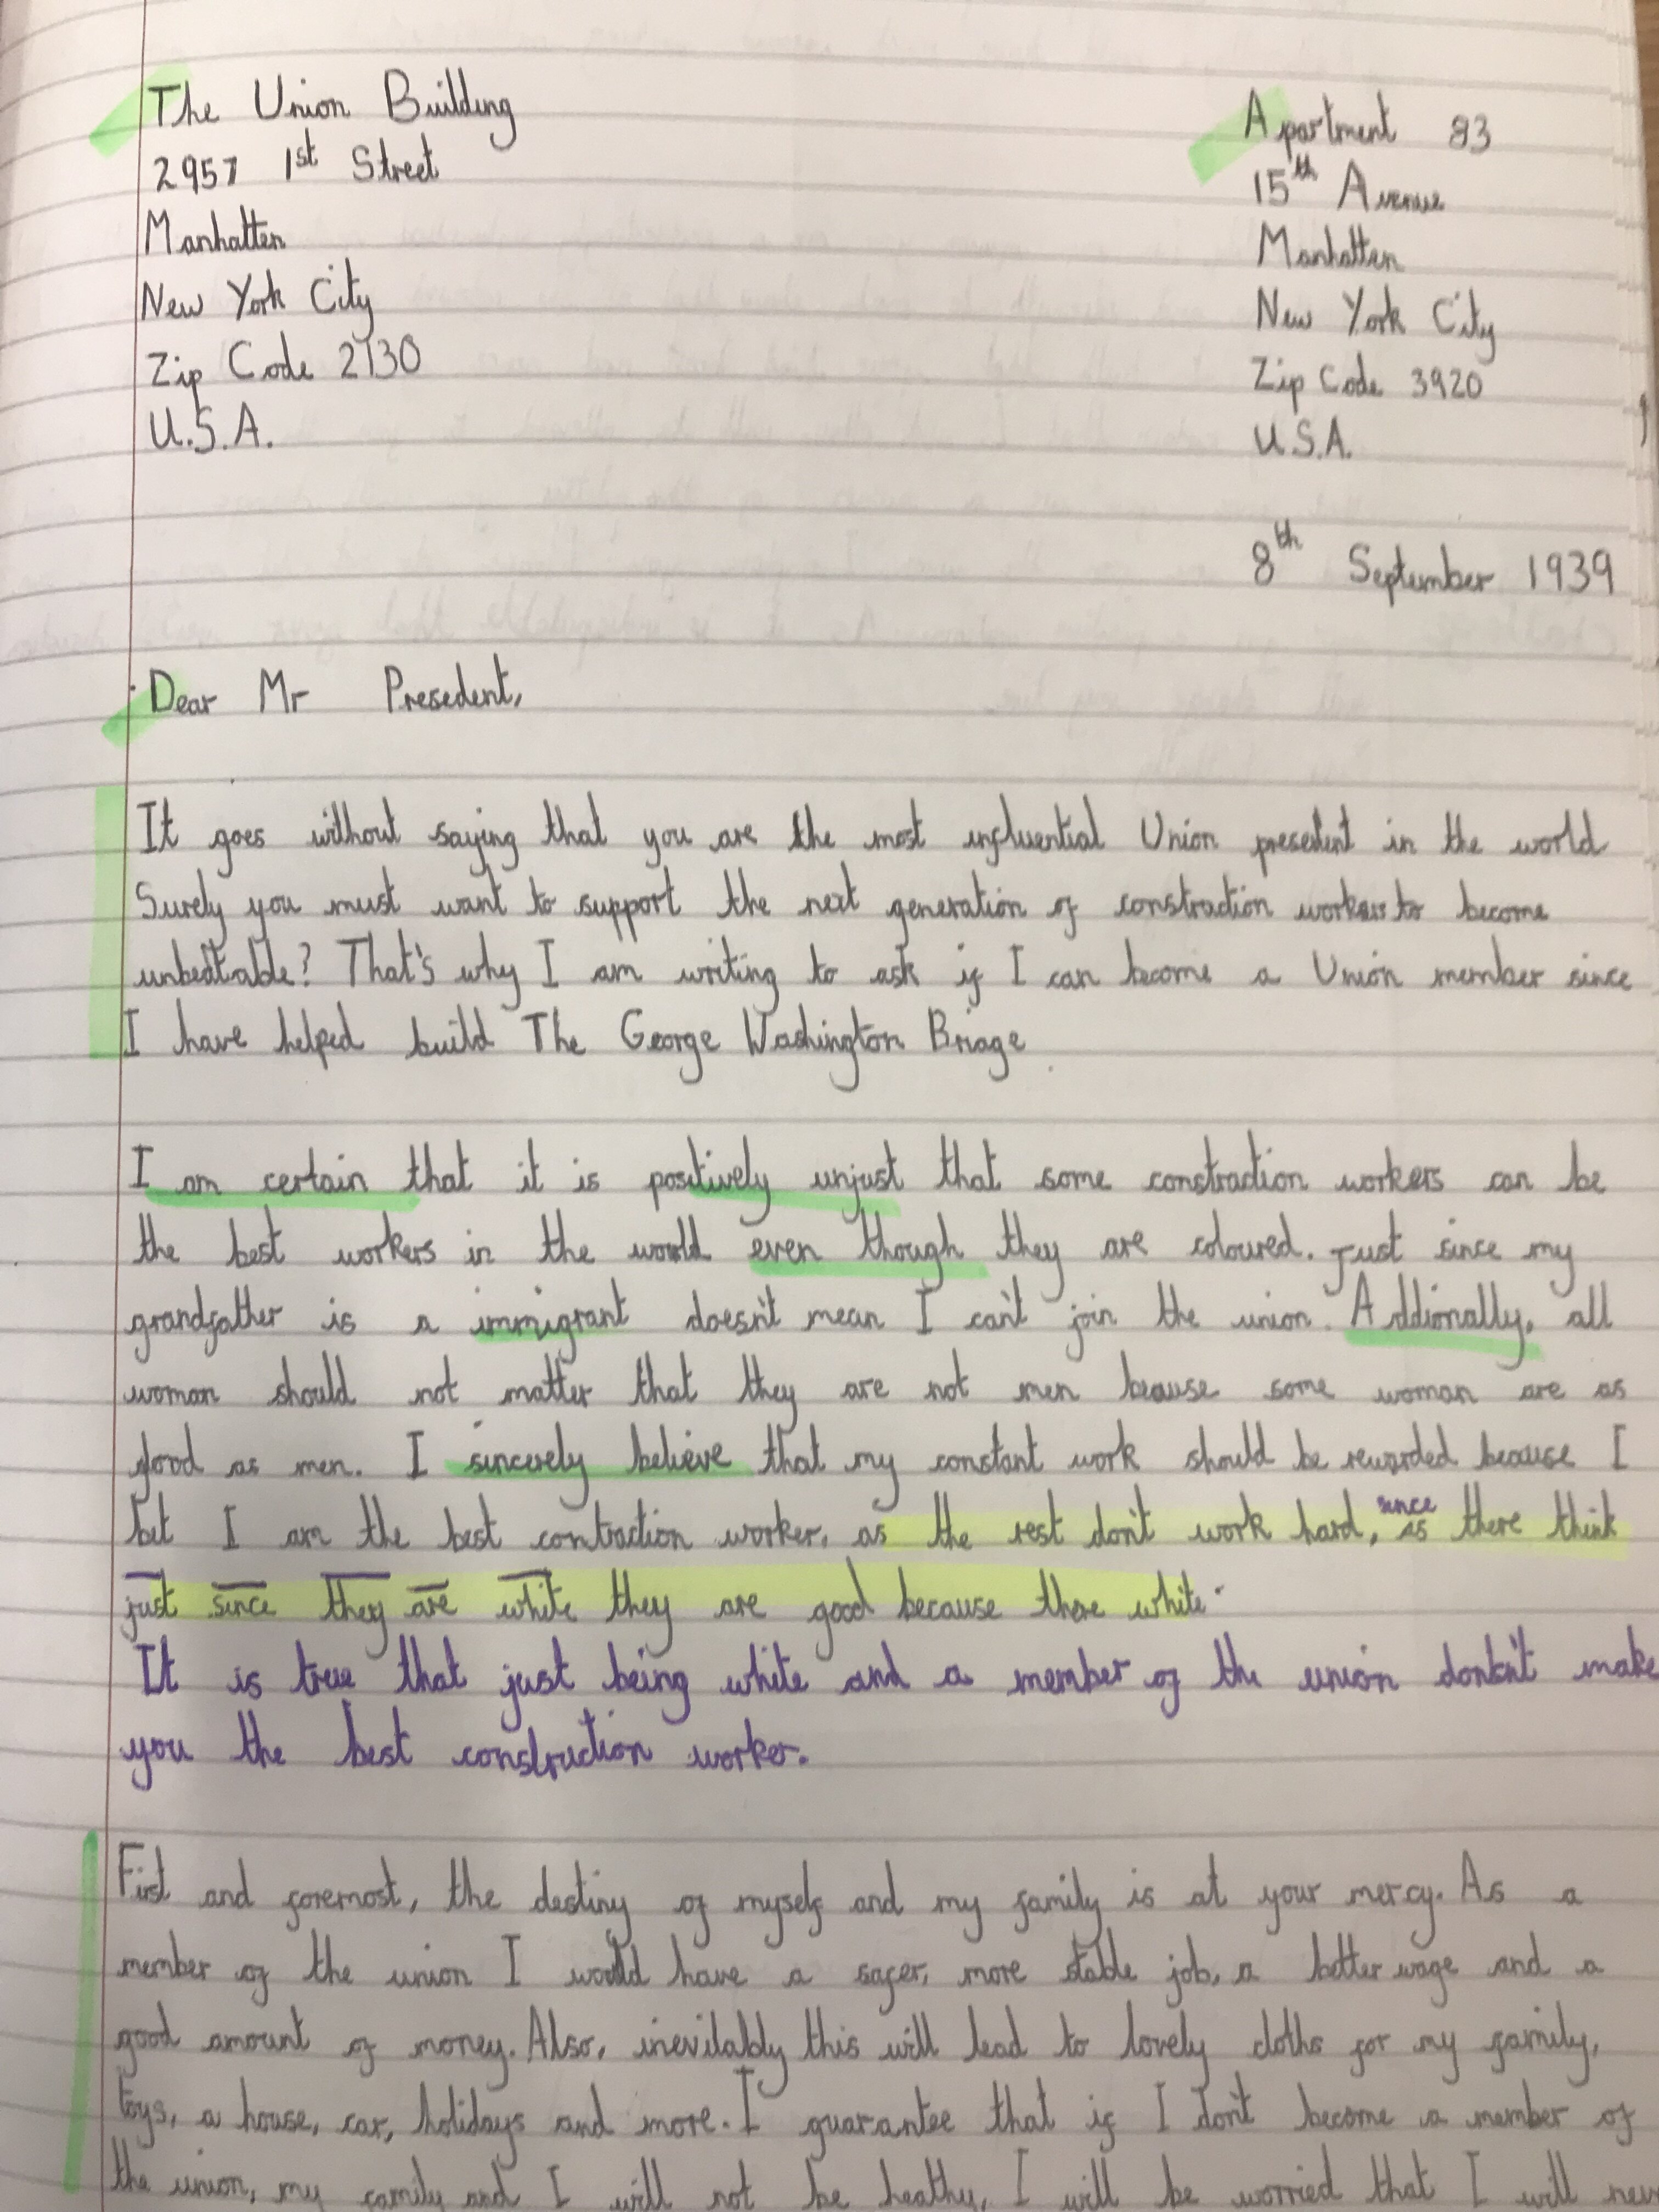 The Union Building
2957 1st Street
Manhatten
New York City
Zip Code 2130
U.S.A.
Apartment 83
15th Avenue
Manhatten
New York City
Zip Code 3920
U.S.A.
8th September 1939
Dear Mr Presedent,
It goes without saying that you are the most influential Union presedent in the world
Surely you must want to support the next generation of constraction workers to become
unbeatable? That's why I am writing to ask if I can become a Union member since
I have helped build The George Washington Briage.
I am certain that it is positively unjust that some constraction workers can be
the best workers in the world even though they are coloured. Just since my
grandfather is a immigrant doesn't mean I can't join the union. Addionally, all
woman should not matter that they are not men beause some woman are as
good as men. I sincerely believe that my constant work should be rewarded because I
bet I am the best contraction worker, as the rest don't work hard, since as there think
just since they are white they are good because there white.
It is true that just being white and a member of the union make
you the best construction worker.
First and foremost, the destiny of myself and my family is at your mercy. As a
member of the union I would have a safer, more stable job, a better wage and a
good amount of money. Also, inevitably this will lead to lovely cloths for my family,
toys, a house, car, holidays and more. I guarantee that if I don't become a member of
the union, my family and I will not be healthy, I will be worried that I will